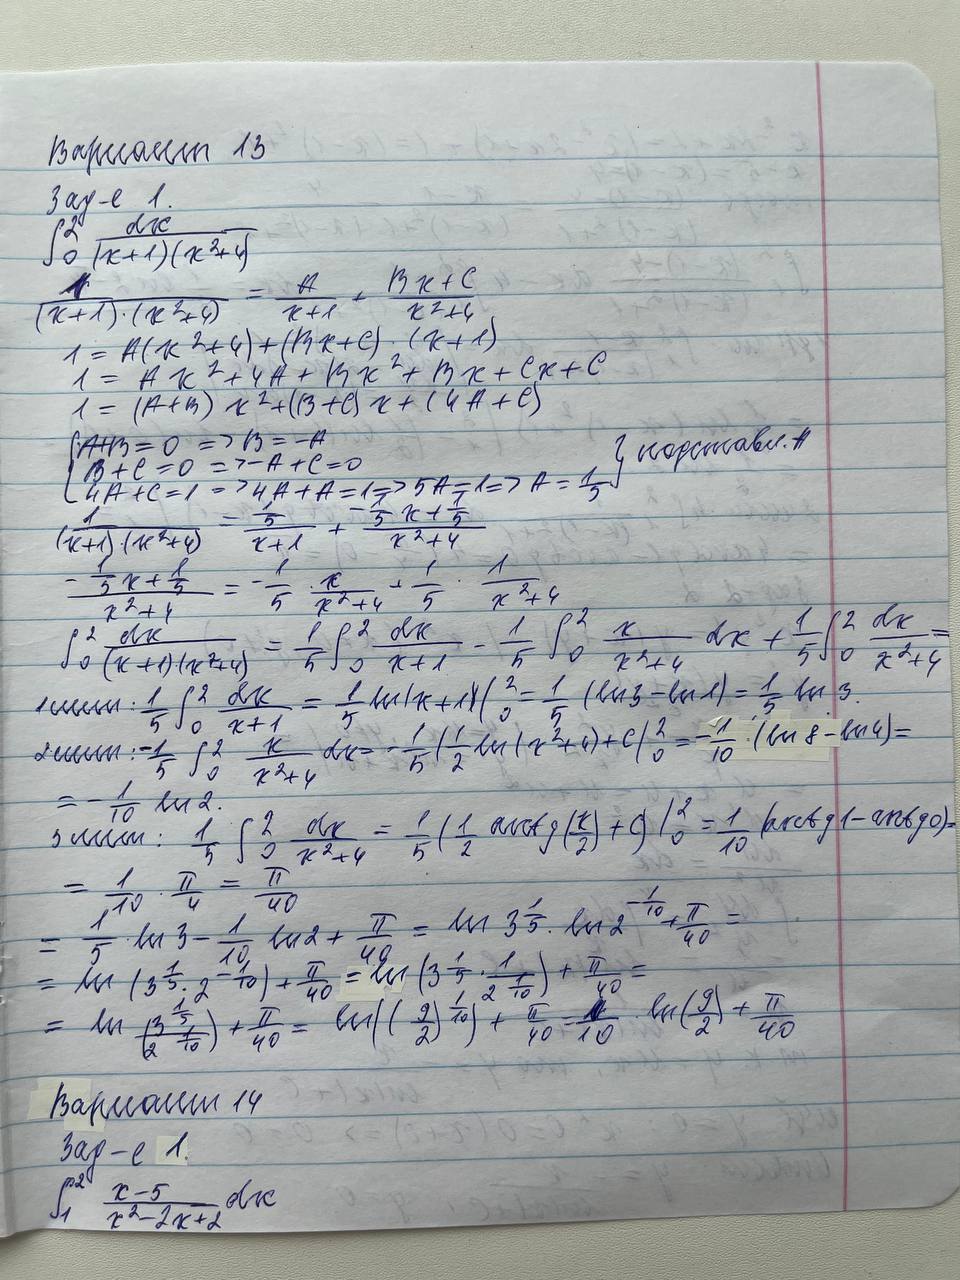 Вариант 13
Зад-е 1.
∫₀² dx/((x+1)(x²+4))
1/((x+1)·(x²+4)) = A/(x+1) + (Bx+C)/(x²+4)
1 = A(x²+4)+(Bx+C)·(x+1)
1 = Ax²+4A+Bx²+Bx+Cx+C
1 = (A+B)x²+(B+C)x+(4A+C)
{A+B=0 => B=-A
B+C=0 => -A+C=0 } подставл. A
4A+C=1 => 4A+A=1 => 5A=1 => A=1/5
1/((x+1)·(x²+4)) = (1/5)/(x+1) + (-1/5x+1/5)/(x²+4)
(-1/5x+1/5)/(x²+4) = -1/5 · x/(x²+4) + 1/5 · 1/(x²+4)
∫₀² dx/((x+1)(x²+4)) = 1/5 ∫₀² dx/(x+1) - 1/5 ∫₀² x/(x²+4) dx + 1/5 ∫₀² dx/(x²+4) =
1 инт: 1/5 ∫₀² dx/(x+1) = 1/5 ln(x+1)|₀² = 1/5 (ln3-ln1) = 1/5 ln 3.
2 инт: -1/5 ∫₀² x/(x²+4) dx = -1/5(1/2 ln(x²+4)+C)|₀² = -1/10·(ln8-ln4)=
= -1/10 ln 2.
3 инт: 1/5 ∫₀² dx/(x²+4) = 1/5(1/2 arctg(x/2)+C)|₀² = 1/10 (arctg1-arctg0)=
= 1/10 · π/4 = π/40
= 1/5 · ln 3 - 1/10 ln 2 + π/40 = ln 3^(1/5) · ln 2^(-1/10) + π/40 =
= ln (3^(1/5)·2^(-1/10)) + π/40 = ln (3^(1/5) · 1/2^(1/10)) + π/40 =
= ln (3^(1/5)/2^(1/10)) + π/40 = ln((9/2)^(1/10)) + π/40 = 1/10 · ln(9/2) + π/40
Вариант 14
Зад-е 1.
∫₁² (x-5)/(x²-2x+2) dx